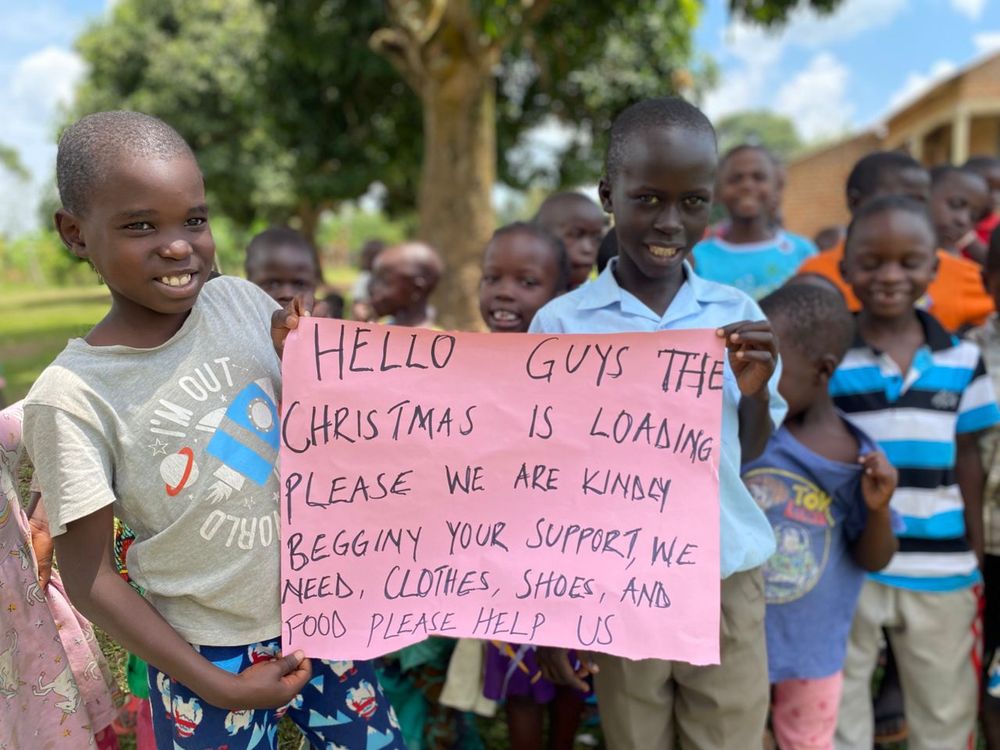 HELLO GUYS THE
CHRISTMAS IS LOADING
PLEASE WE ARE KINDLY
BEGGINY YOUR SUPPORT, WE
NEED, CLOTHES, SHOES, AND
FOOD PLEASE HELP US
I'M OUT
WORLD
TOY